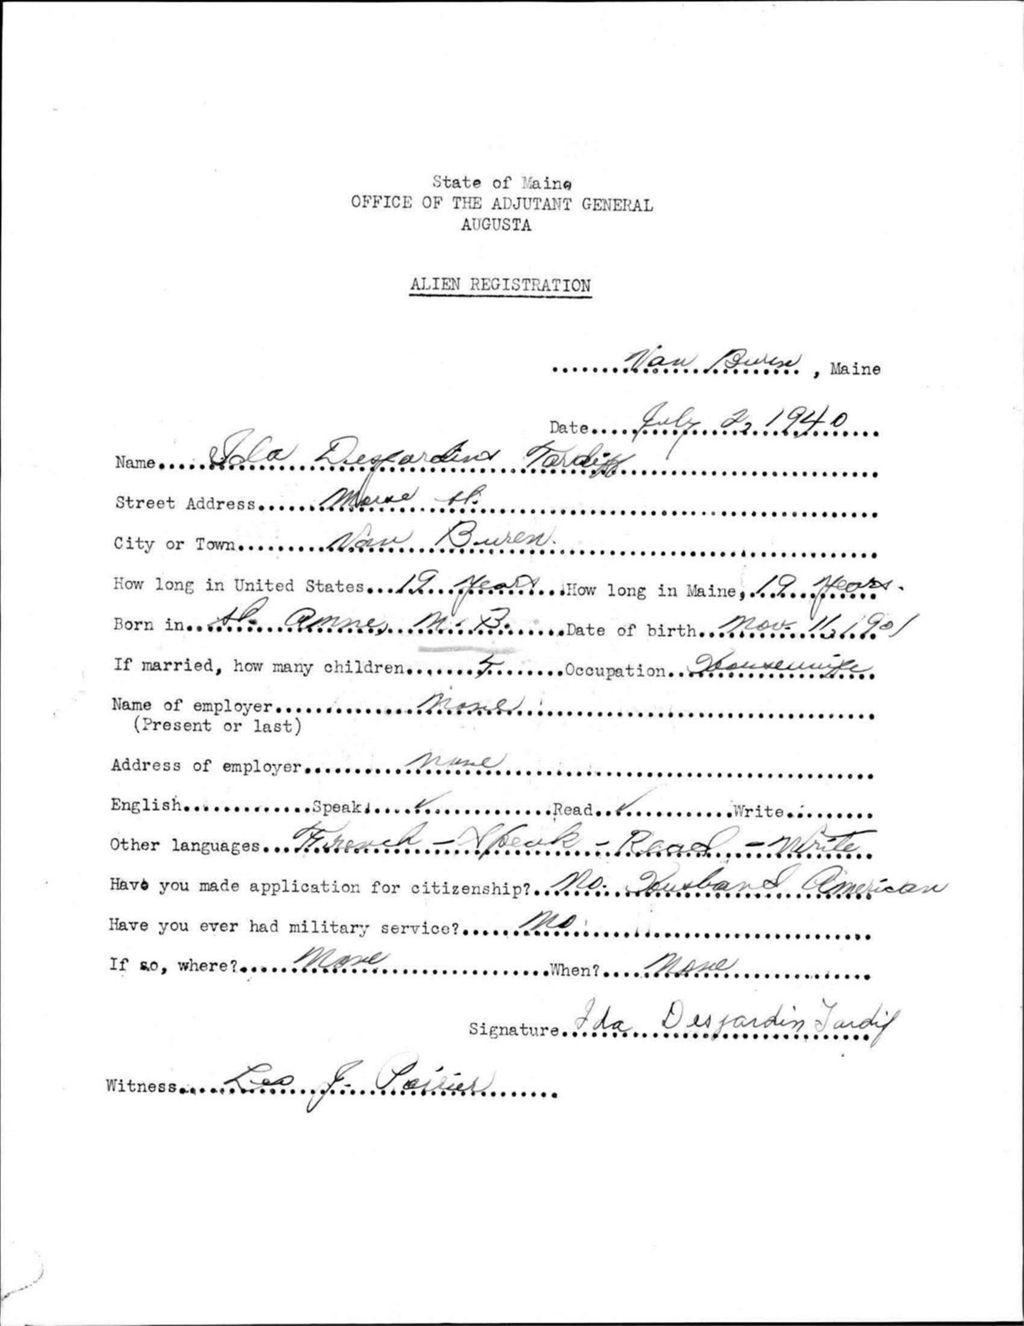 State of Maine
OFFICE OF THE ADJUTANT GENERAL
AUGUSTA
ALIEN REGISTRATION
Van Buren, Maine
Date July 2, 1940
Name Ida Desjardins Tardiff
Street Address St.
City or Town Van Buren.
How long in United States 19 Years How long in Maine, 19 Years.
Born in St. Annes, N. B. Date of birth Nov. 11, 1901
If married, how many children Occupation Housewife
Name of employer None
(Present or last)
Address of employer None
English Speak ✓ Read ✓ Write
Other languages French - Speak - Read - Write
Have you made application for citizenship? No. Husband American
Have you ever had military service? No
If so, where? None When? None
Signature Ida Desjardin Tardif
Witness Leo J. Poirier